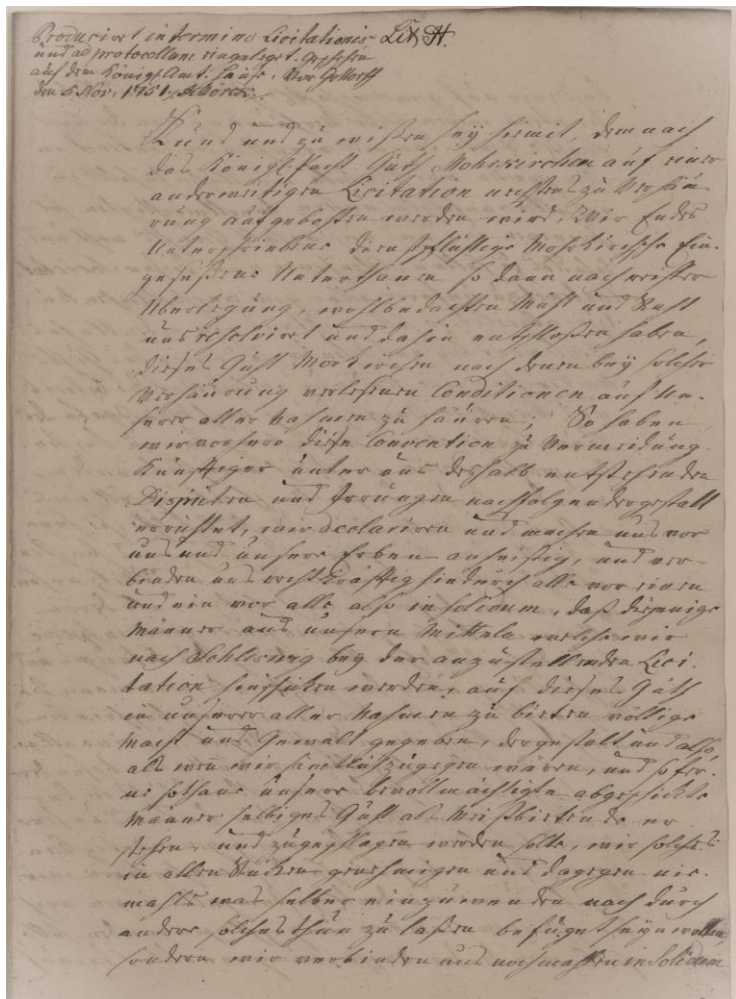 Produciret in termino Licitationis Lit. H.
und ad protocollum eingeleget. geschehen
auf dem Königl. Amt-Hause, vor Gottorff
den 5 Nov. 1751.
Kund und zu wißen sey hiemit, dem nach
das Königl. Pacht Guth Mohrkirchen auf einer
anderweitigen Licitation nechstens zu Verheu-
rung aufgebothen werden wird. Wir Endes
Unterschriebene dienstpflichtige Mohrkirchsche Ein-
geseßene Unterthanen so dann nach reiffer
Uberlegung, wohlbedachten Muht und Raht
uns resolviret und dahin entschloßen haben,
dieses Guht Morkirchen nach denen bey solcher
Verheurung verlesenen Conditionen auf un-
serer aller Nahmen zu heuren; So haben
wir vorhero diese Convention zu Vermeidung
künfftiger unter uns deshalb entstehenden
Disputen und Irrungen nachfolgendergestalt
errichtet, wir declariren und machen uns vor
uns und unsere Erben anheischig, und ver-
binden uns recht kräfftig hiedurch alle vor einen
und ein vor alle also in solidum, daß diejenige
Männer aus unsern Mitteln welche wir
nach Schleswig bey der anzustellenden Lici-
tation hinschicken werden, auf dieses Guht
in unserer aller Nahmen zu bieten völlige
Macht und Gewalt gegeben, dergestalt und also
als wen wir sämtlich zugegen wären, und so fer-
ne sothane unsere bevollmächtigte abgeschickte
Männer selbiges Guht als Meistbietende er-
stehen, und zugeschlagen werden solte, wir solches
in allen Stücken genehmigen und dagegen nie-
mahls was selber einzuwenden noch durch
andere solches thun zu laßen befugt seyn wollen,
sondern wir verbinden uns nochmahlen in Solidum